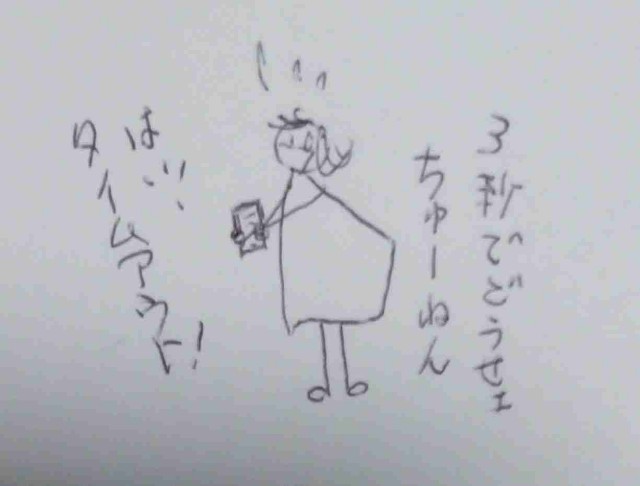 3秒でどうせェ
ちゅーねん
は…!
タイムアウト!